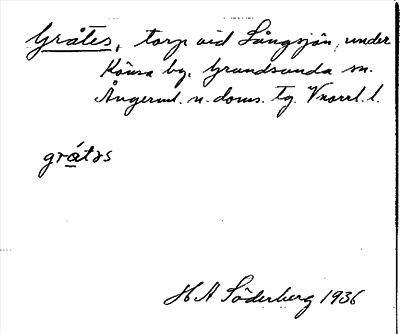 Gråtes, torp vid Långsjön, under
Könsa by, Grundsunda sn.
Ångerml. n. doms. tg. Vnorrl. l.
gråtəs
H A Söderberg 1936